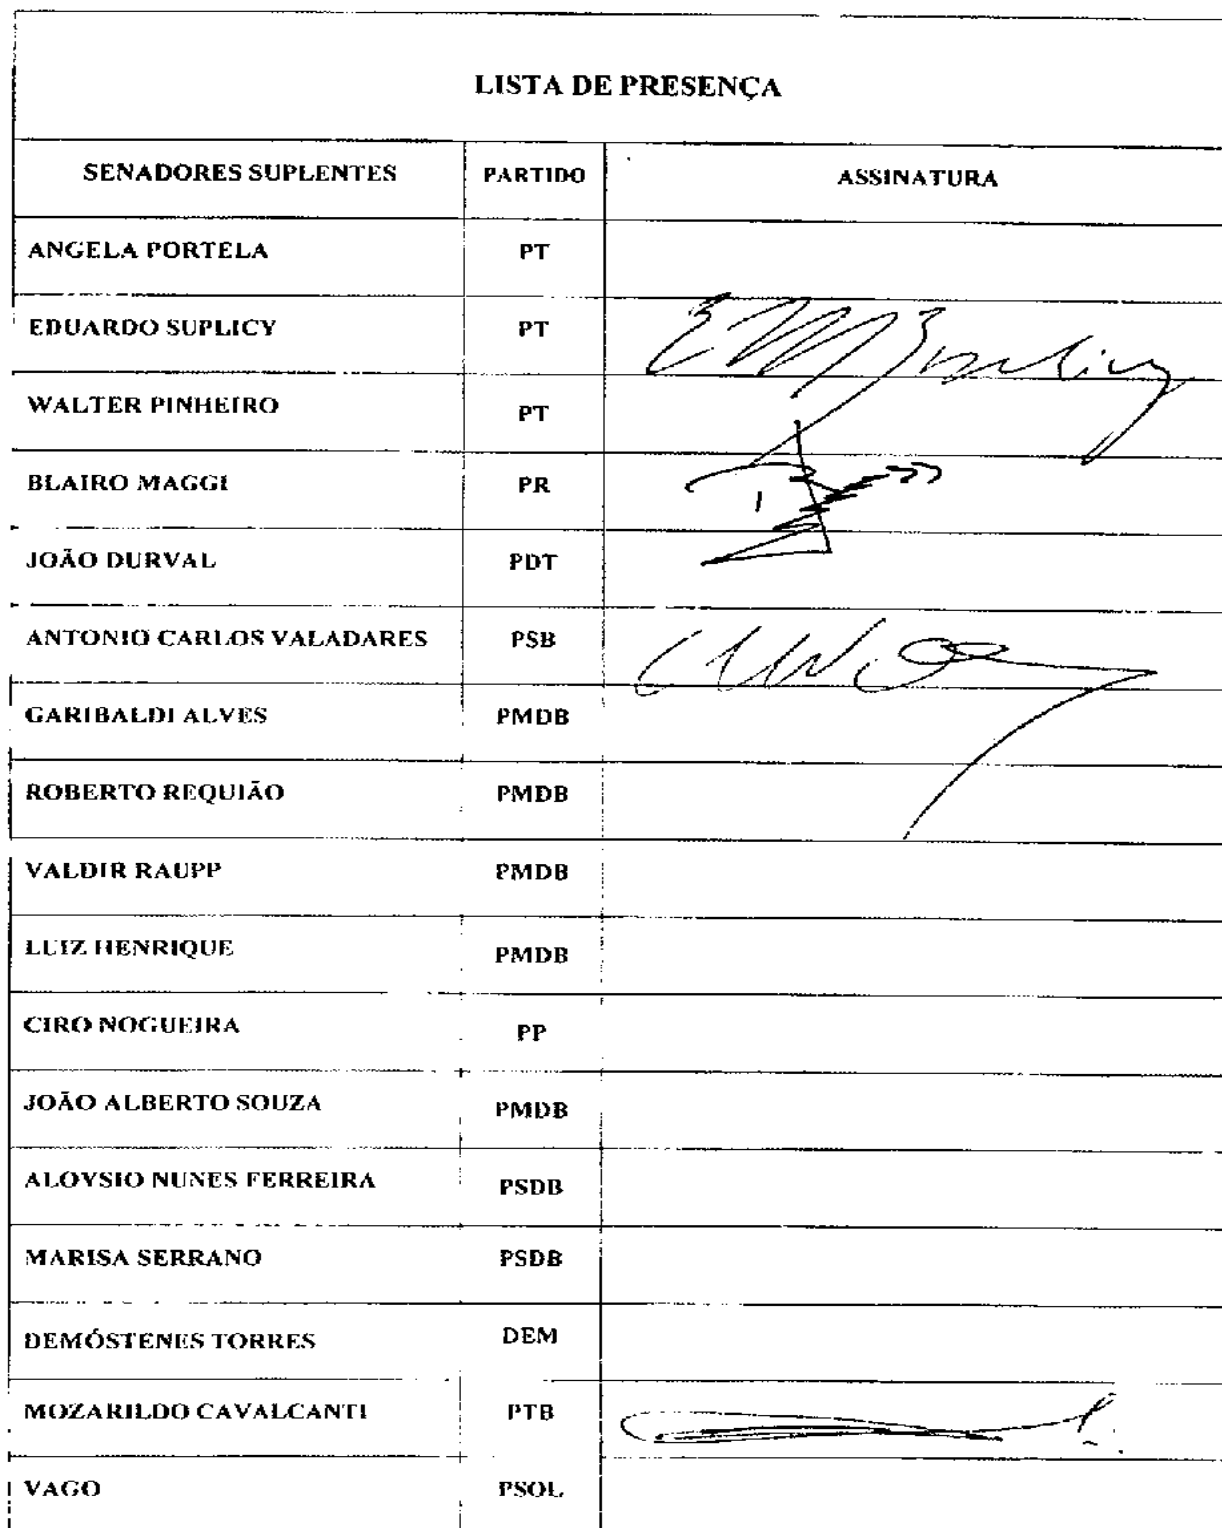 LISTA DE PRESENÇA
SENADORES SUPLENTES PARTIDO ASSINATURA
ANGELA PORTELA PT
EDUARDO SUPLICY PT
WALTER PINHEIRO PT
BLAIRO MAGGI PR
JOÃO DURVAL PDT
ANTONIO CARLOS VALADARES PSB
GARIBALDI ALVES PMDB
ROBERTO REQUIÃO PMDB
VALDIR RAUPP PMDB
LUIZ HENRIQUE PMDB
CIRO NOGUEIRA PP
JOÃO ALBERTO SOUZA PMDB
ALOYSIO NUNES FERREIRA PSDB
MARISA SERRANO PSDB
DEMÓSTENES TORRES DEM
MOZARILDO CAVALCANTI PTB
VAGO PSOL